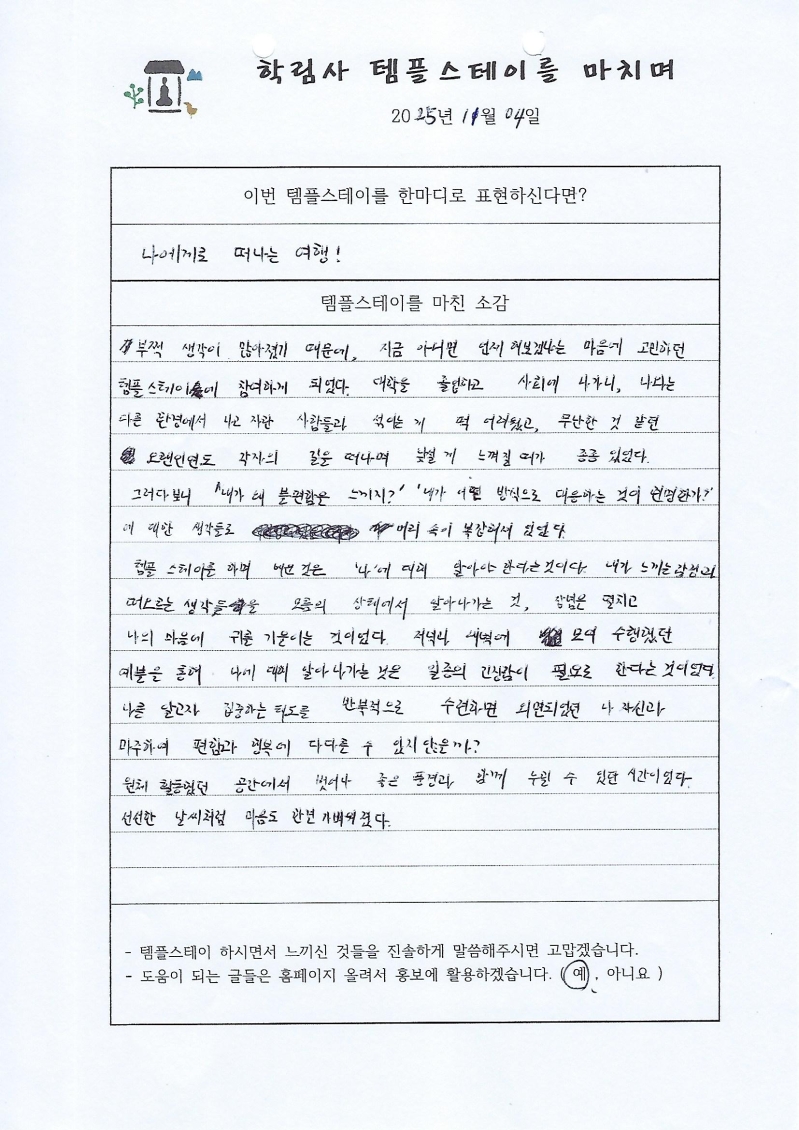 학림사 템플스테이를 마치며
2025년 11월 04일
이번 템플스테이를 한마디로 표현하신다면?
나에게로 떠나는 여행!
템플스테이를 마친 소감
부쩍 생각이 많아졌기 때문에, 지금 아니면 언제 해보겠냐는 마음에 고민하던
템플스테이에 참여하게 되었다. 대학을 졸업하고 사회에 나가니, 나와는
다른 환경에서 나고 자란 사람들과 섞이는 게 퍽 어려웠고, 무난한 것 같던
오랜인연도 각자의 길을 떠나며 낯설 게 느껴질 때가 종종 있었다.
그러다보니 '내가 왜 불편함을 느끼지?' '내가 어떤 방식으로 대응하는 것이 현명한가?'
에 대한 생각들로 머리 속이 복잡해져 있었다.
템플 스테이를 하며 배운 것은 '나'에 대해 알아야 한다는것이다. 내가 느끼는 감정과
떠오르는 생각들을 모름의 상태에서 알아나가는 것, 잡념은 떨치고
나의 마음에 귀를 기울이는 것이었다. 저녁과 새벽에 모여 수행했던
예불을 통해 나에 대해 알아나가는 것은 일종의 긴장감이 필요로 한다는 것이었다.
나를 알고자 집중하는 태도를 반복적으로 수련하면 외면되었던 나 자신과
마주하여 편함과 행복에 다다를 수 있지 않을까?
원래 활동했던 공간에서 벗어나 좋은 풍경과 함께 누릴 수 있던 시간이었다.
선선한 날씨처럼 마음도 한편 가벼워졌다.
- 템플스테이 하시면서 느끼신 것들을 진솔하게 말씀해주시면 고맙겠습니다.
- 도움이 되는 글들은 홈페이지 올려서 홍보에 활용하겠습니다. ( 예 , 아니요 )